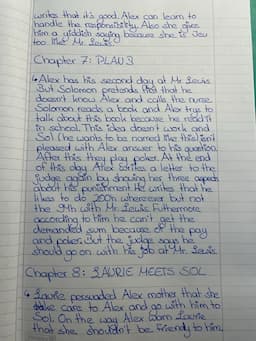 writes that it's good. Alex can learn to
handle the responsibility. Also she gives
him a yiddish saying because she is Jew
too like Mr. Lewis.
Chapter 7: PLAN 3
↳ Alex has his second day at Mr Lewis
But Solomon pretends that he
doesn't know Alex and calls the nurse.
Solomon reads a book and Alex try to
talk about this book because he read it
in school. This idea doesn't work and
Sol (he wants to be named like this) isn't
pleased with Alex answer to his question.
After this they play poker. At the end
of this day Alex writes a letter to the
judge again by showing her three aspects
about his punishment. He writes that he
likes to do 100h wherever but not
the 94h with Mr. Lewis. Futhermore
according to him he can't get the
demanded sum because of the pay
and poker. But the judge says he
should go on with his job at Mr. Lewis.
Chapter 8: LAURIE MEETS SOL
↳ Laurie persuaded Alex mother that she
take care to Alex and go with him to
Sol. On the way Alex warn Laurie
that she shouldn't be friendly to him